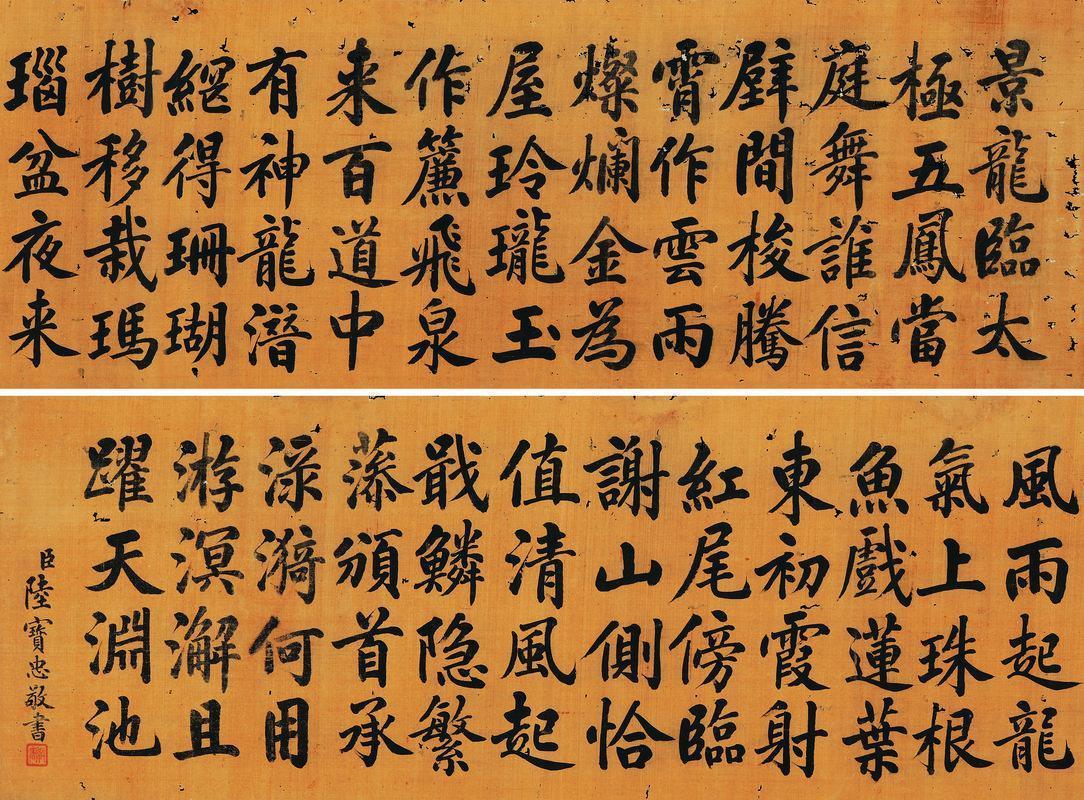 景龍臨太
極五鳳當
庭舞誰信
壁間梭騰
霄作雲雨
燦爛金為
屋玲瓏玉
作簾飛泉
来百道中
有神龍潛
網得珊瑚
樹移栽瑪
瑙盆夜来
風雨起龍
氣上珠根
魚戲蓮葉
東初霞射
紅尾傍臨
謝山側恰
值清風起
戢鱗隐繁
藻頒首承
渌漪何用
游溟澥且
躍天淵池
臣陸寶忠敬書